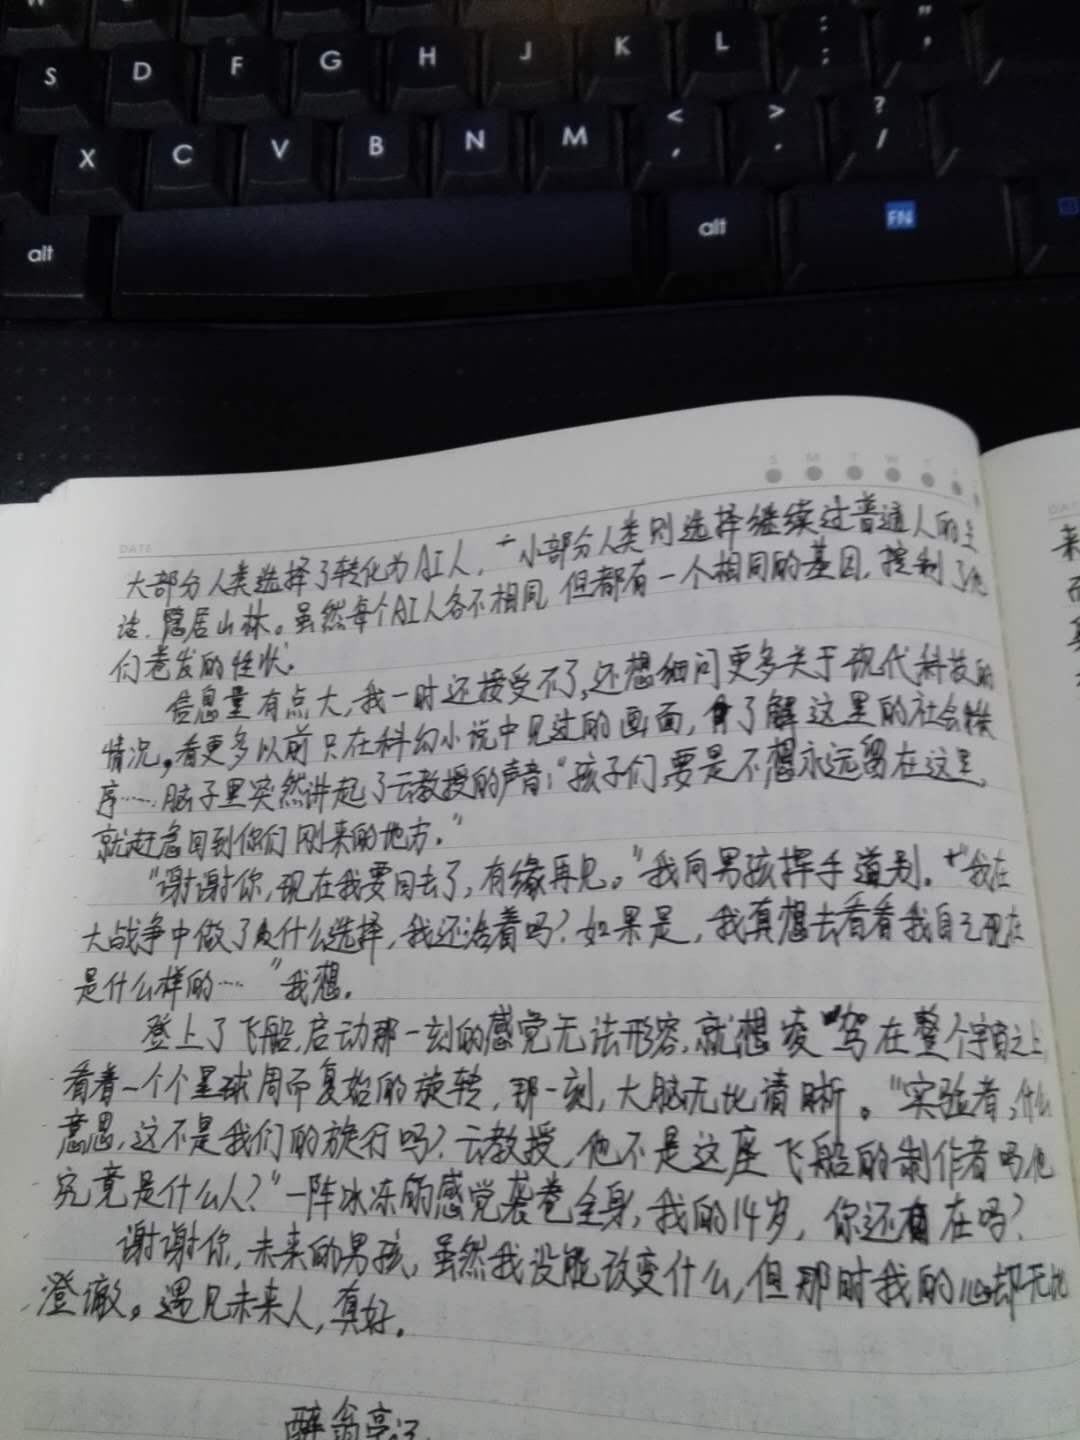 S D F G H J K L : ; " '
X C V B N M < , > . ? /
alt alt FN
S M T W
DATE
大部分人类选择了转化为AI人,一小部分人类则选择继续过普通人的生
活,隐居山林。虽然每个AI人各不相同,但都有一个相同的基因,控制了他
们卷发的性状。
信息量有点大,我一时还接受不了,还想细问更多关于现代科技的
情况,看更多以前只在科幻小说中见过的画面,了解这里的社会秩
序……脑子里突然讲起了云教授的声音:“孩子们,要是不想永远留在这里,
就赶急回到你们刚来的地方。”
“谢谢你,现在我要回去了,有缘再见。”我向男孩挥手道别。“我在
大战争中做了什么选择,我还活着吗?如果是,我真想去看看我自己现在
是什么样的…”我想。
登上了飞船,启动那一刻的感觉无法形容,就想凌驾在整个宇宙之上,
看着一个个星球周而复始的旋转,那一刻,大脑无比清晰。“实验者,什么
意思,这不是我们的旅行吗?云教授,他不是这座飞船的制作者吗他
究竟是什么人?”一阵冰冻的感觉袭卷全身,我的14岁,你还在吗?
谢谢你,未来的男孩,虽然我没能改变什么,但那时我的心却无比
澄澈。遇见未来人,真好。
醉翁亭记
DATE
来